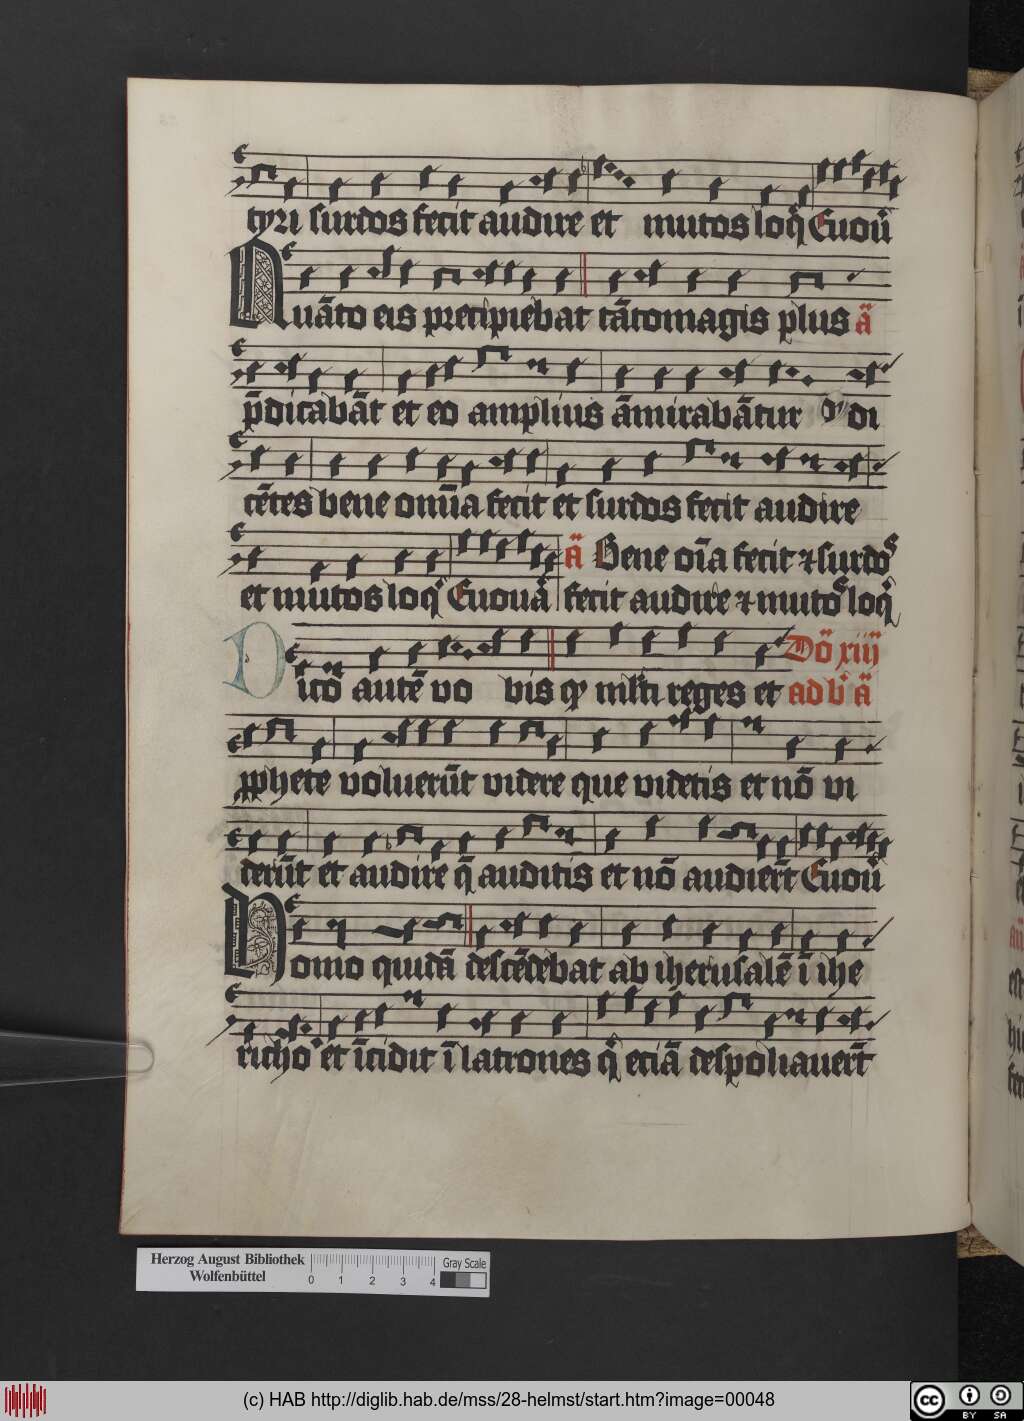 tyri surdos fecit audire et mutos loq̄ Euoū
Quāto eis precipiebat tātomagis plus ā
p̄dicabāt et eo amplius āmirabātur di
cētes bene omīa fecit et surdos fecit audire
ā Bene oīa fecit ⁊ surdos
et mutos loq̄ Euouā fecit audire ⁊ mutos loq̄
Dō xiiij
ico autē vo bis qꝛ mlti reges et ad b ā
ꝓphete voluerūt videre que videtis et nō vi
derūt et audire q̄ auditis et nō audiert̄ Euoū
Homo quidā descēdebat ab iherusalē ī ihe
richo et īcidit ī latrones q̄ eciā despoliauert̄
Herzog August Bibliothek
Wolfenbüttel
0 1 2 3 4
Gray Scale
(c) HAB http://diglib.hab.de/mss/28-helmst/start.htm?image=00048
cc BY SA